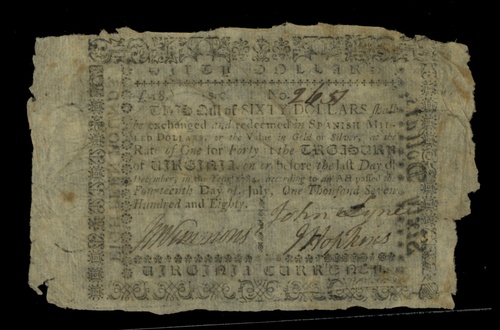 SIXTY DOLLARS.
No. 2681
THIS Bill of SIXTY DOLLARS shall
be exchanged and redeemed in SPANISH MIL-
LED DOLLARS, or the Value in Gold or Silver, at the
Rate of One for Forty at the TREASURY
of VIRGINIA, on or before the last Day of
December, in the Year 1784, according to an Act passed
Fourteenth Day of July, One Thousand Seven
Hundred and Eighty.
John Lyne
Wm Simmons
J Hopkins
VIRGINIA CURRENCY
SIXTY DOLLARS